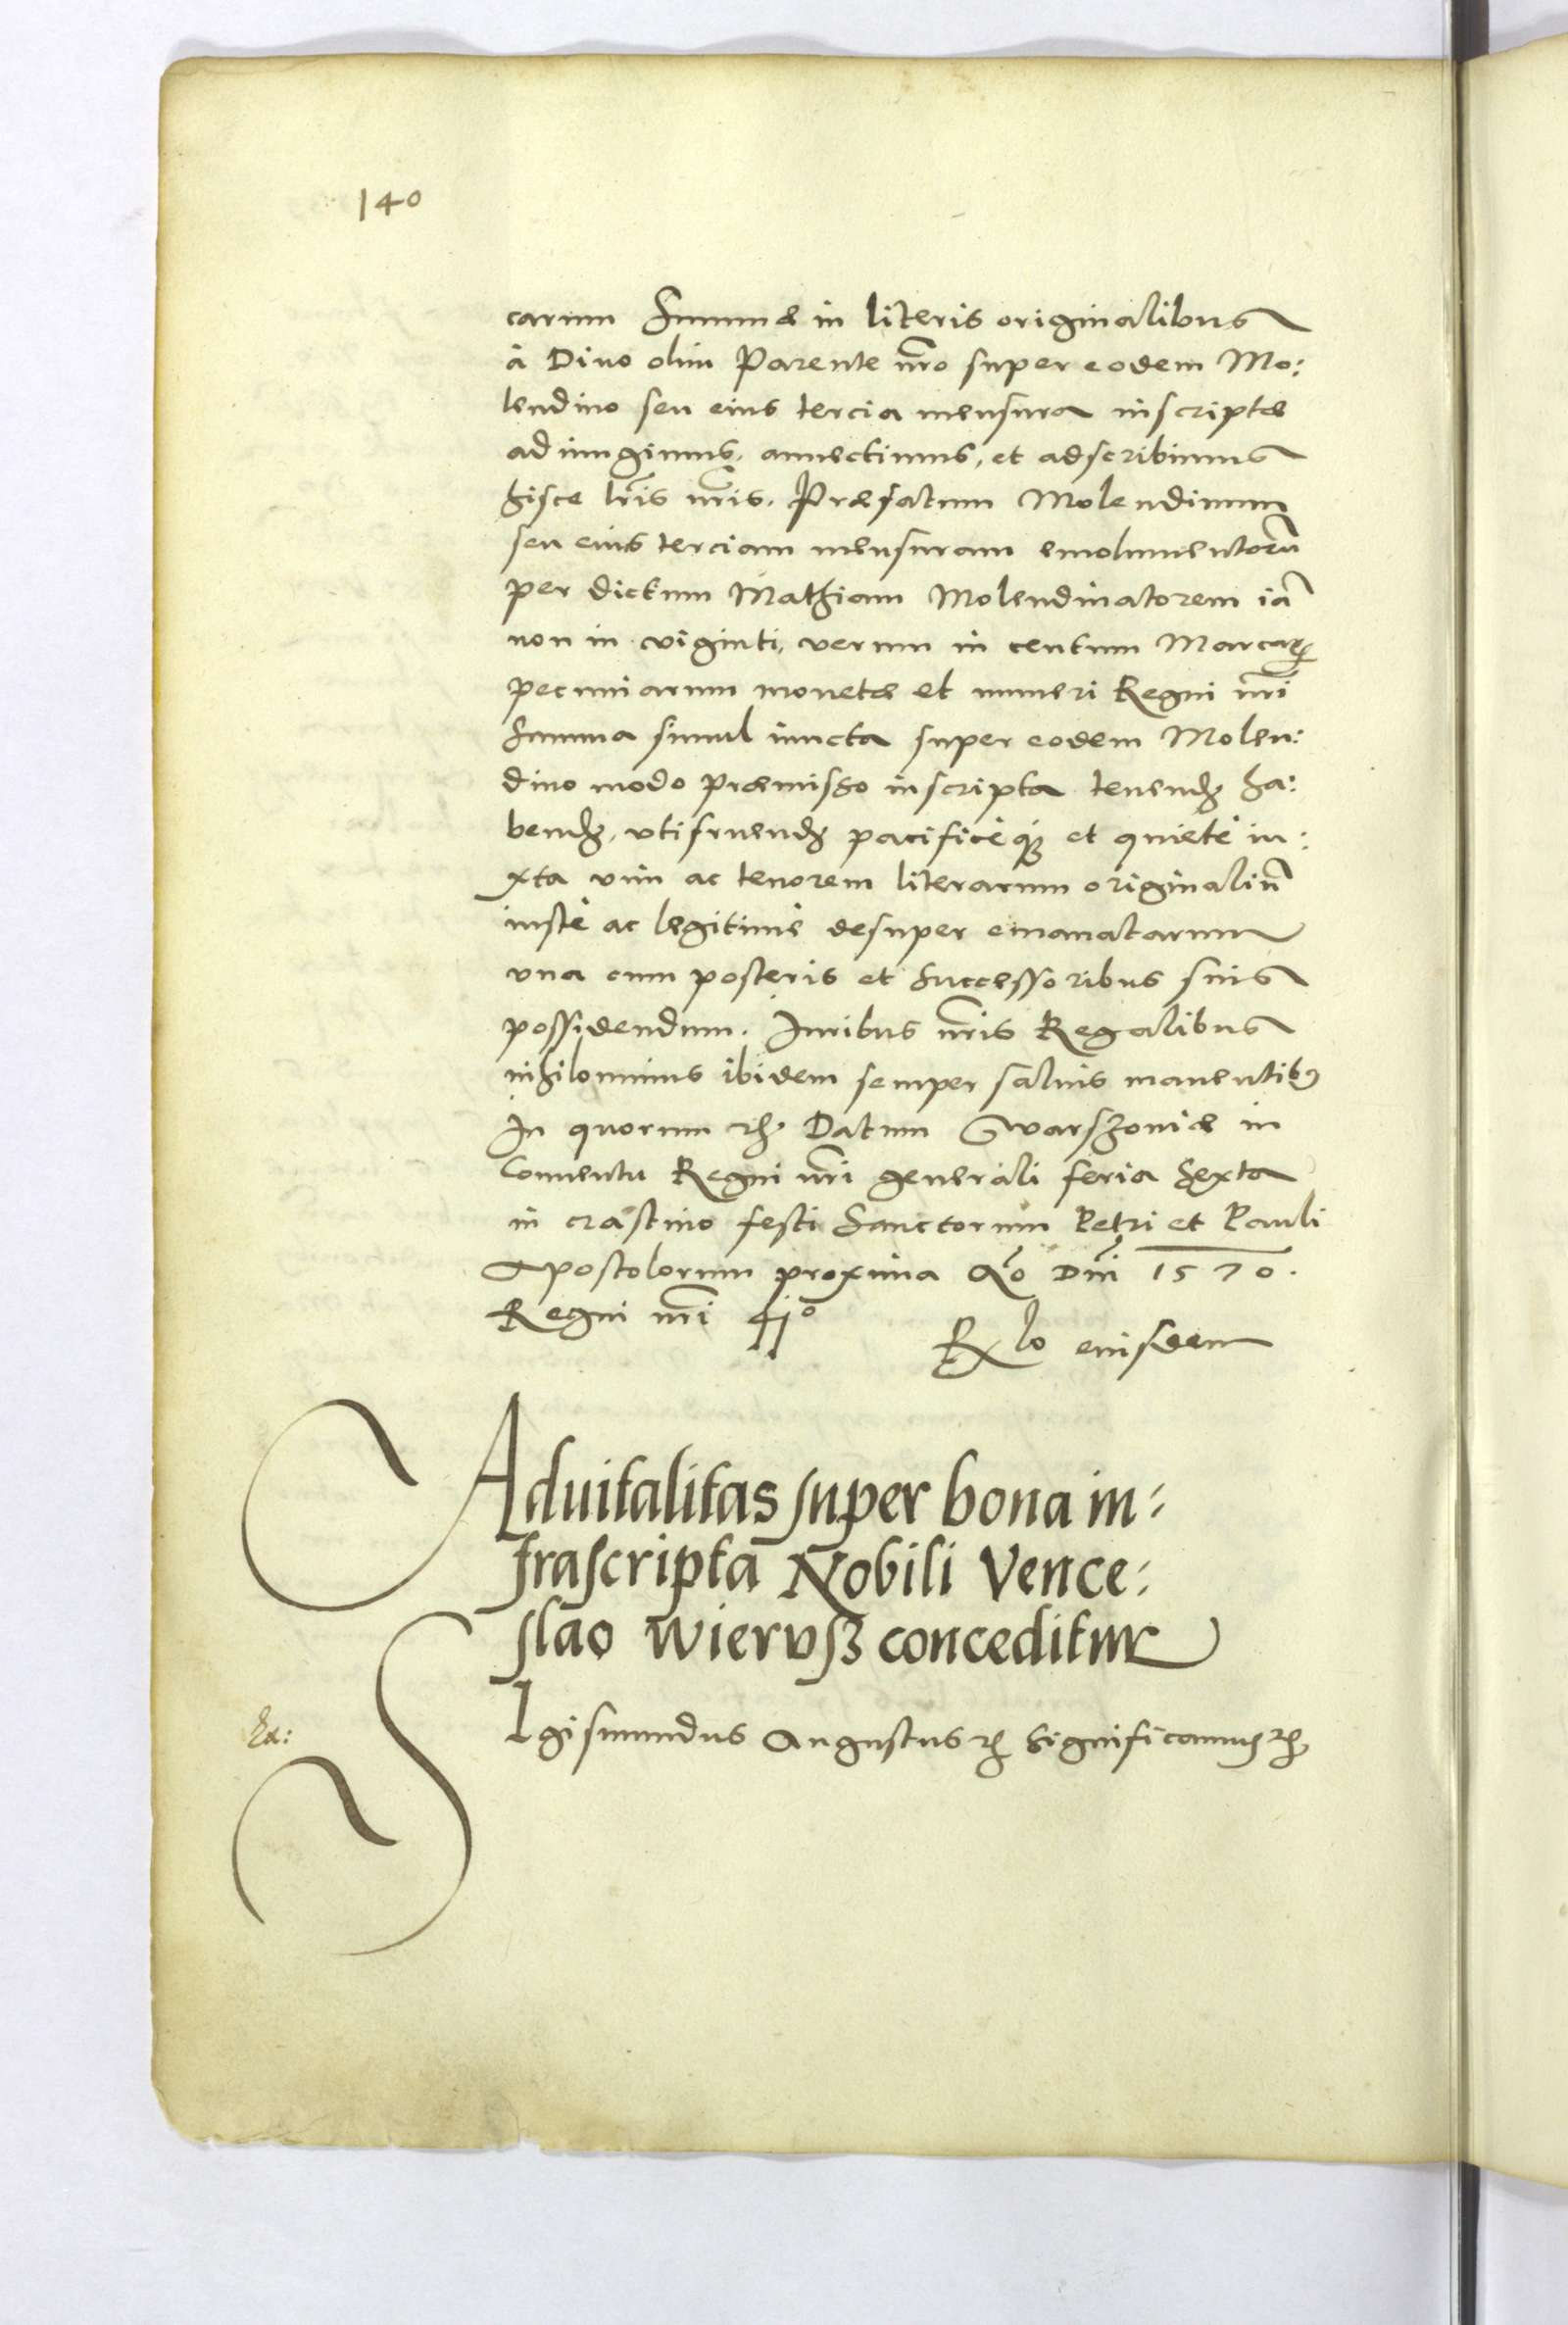 140
carum Summæ in literis originalibus
à Diuo olim Parente nr̃o super eodem Mo:
lendino seu eius tercia mensura inscriptæ
adiungimus, annectimus, et adscribimus
hisce lr̃is nr̃is. Præfatum Molendinum
seu eius terciam mensuram emolumentorũ
per dictum Mathiam Molendinatorem iã
non in viginti, verum in centum Marcaꝝ
pecuniarum monetæ et numeri Regni nr̃i
Summa simul iuncta super eodem Molen:
dino modo præmisso inscripta tenendꝫ ha:
bendꝫ, vtifruendꝫ pacificèqꝫ et quietè iu:
xta vim ac tenorem literarum originaliũ
iustè ac legitimè desuper emanatarum
vna cum posteris et Successoribus suis
possidendum. Iuribus nr̃is Regalibus
nihilominus ibidem semper saluis manentibꝰ
In quorum ꝛc̃. Datum Warszouiæ in
Conuentu Regni nr̃i generali feria Sexta
in crastino festi Sanctorum Petri et Pauli
Apostolorum proxima Añ̃o Dñi 1570.
Regni nr̃i 41º
Rx̃lo eiusdem
Aduitalitas super bona in:
frascripta Nobili Vence:
slao Wierusz conceditur
Ex:
SIgismundus Augustus ꝛc̃ Significamus ꝛc̃